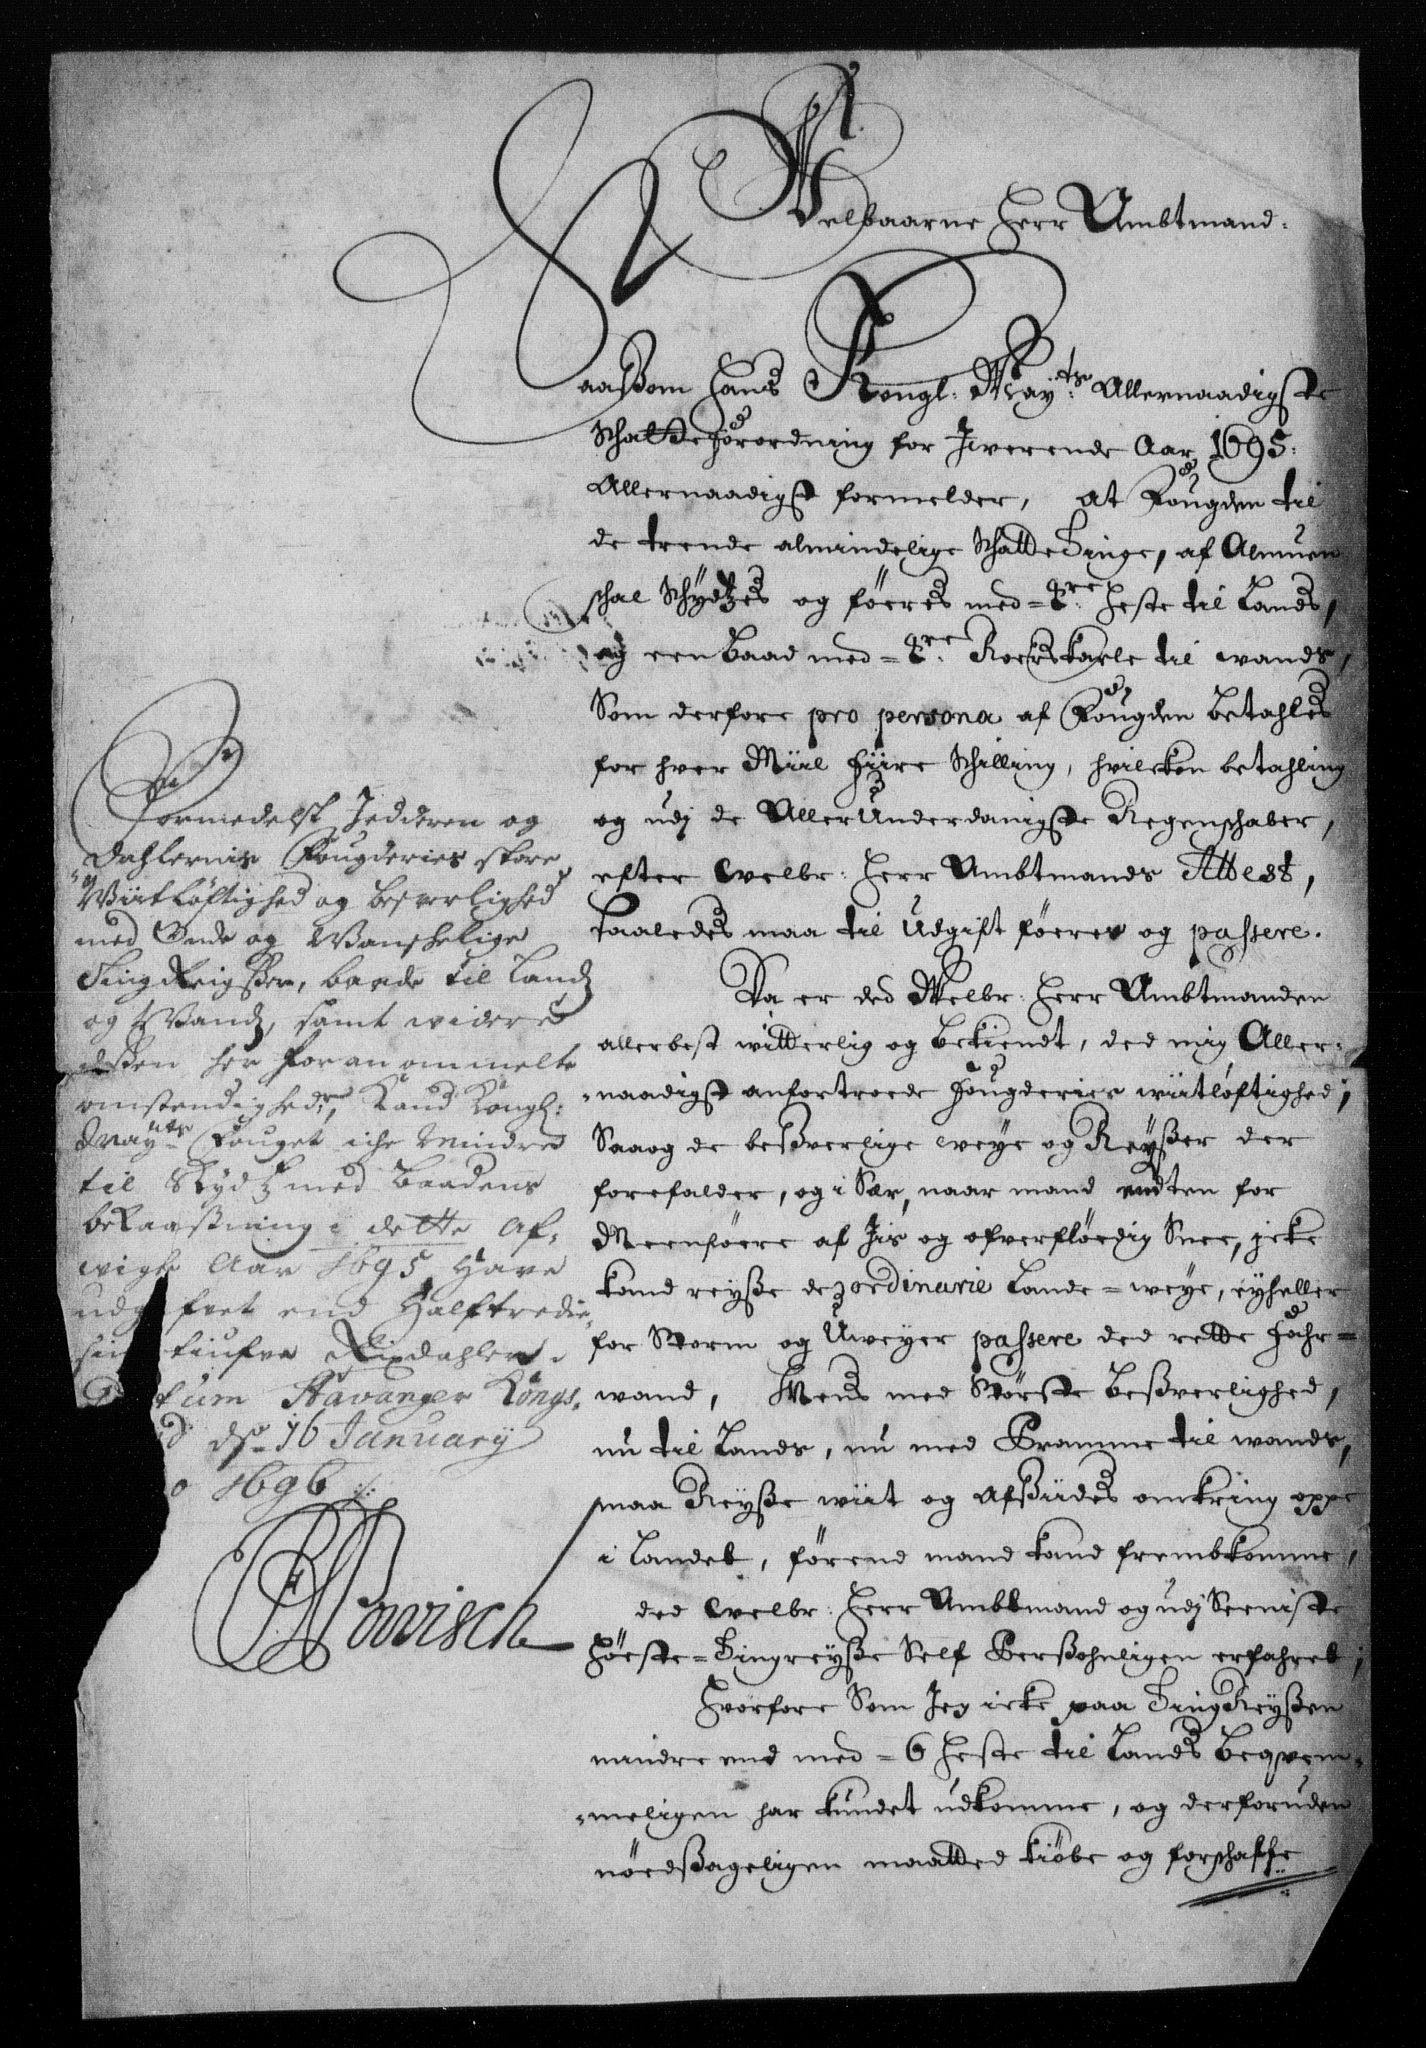 Welbaarne Herr Ambtmand.
Saaßom Hans Kongl: May:ts Allernaadigste
Schatteforordning for Jwerende Aar 1695:
Allernaadigst formelder, at Fougden til
de trende almindelige SchatteTinge, af Almuen
schal Schydtzes og föeres med = Heste til Lands,
og een Baad med = Roerskarle til wands,
Som derfore pro persona af Fougden betahles
for hver Miil Fiire Schilling, hvilcken betahling
og udj de AllerUnderdanigste Regenschaber,
efter welbr: Herr Ambtmands Attest,
saaledes maa til Udgift föeres og passere.
Da er ded Welbr: Herr Ambtmanden
allerbest witterlig og bekiendt, ded mig Aller-
-naadigst anfortroede Fougderies wiitløftighed,
Saaog de beßverlige weye og Reyßer der
forefalder, og i Sær, naar mand endten for
Meenföere af Jis og ofverflöedig Snee, icke
kand reyße de ordinarie Lande = weye, eyheller
for Storm og Uweyer passere ded rette Fahr=
wand, Mens med Störste beßverlighed,
nu til Lands, nu med Pramme til wands,
maa Reyße wiit og afßiides omkring oppe
i Landet, förend mand kand frembkomme,
ded welbr: Herr Ambtmand og udj Seeniste
Höeste = Tingreyße Self Perßohnligen erfahret;
Hvorfore Som Jeg icke paa TingReyßen
mindre end med = 6 Heste til Lands beqvem-
-meligen har kundet udkomme, og derforuden
nöedßageligen maatted kiöbe og forschaffe
Formedelst Jedderen og
Dahlernis Fougderies store
Wiitløftighed og besverlighed
med Onde og Wanschelige
TingReigßer, baade til Landz
og Wandz, samt widere
desßen her foran ommelte
omstendigheder, Kand Kongl:
May:ts Fouget iche Mindre
til Skydtz med Baadens
bekaastning i dette Af-
wigte Aar 1695 Have
udgifvet end Halftredie-
sin tiufve Rixdahler.
Datum Stavanger Kongs-
d: 16 January
o 1696
Powisch